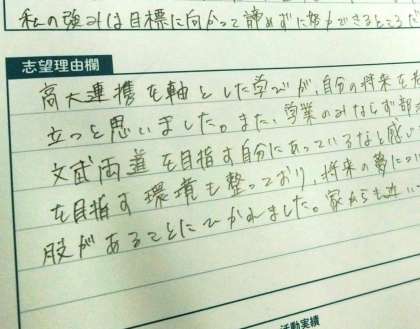 私の強みは目標に向かって諦めずに努力できるところだ
志望理由欄
高大連携を軸とした学びが、自分の将来を
立つと思いました。また、学業のみならず部
文武両道を目指す自分にあっているなと感
を目指す環境も整っており、将来の夢につ
肢があることにひかれました。家からも近い
活動実績